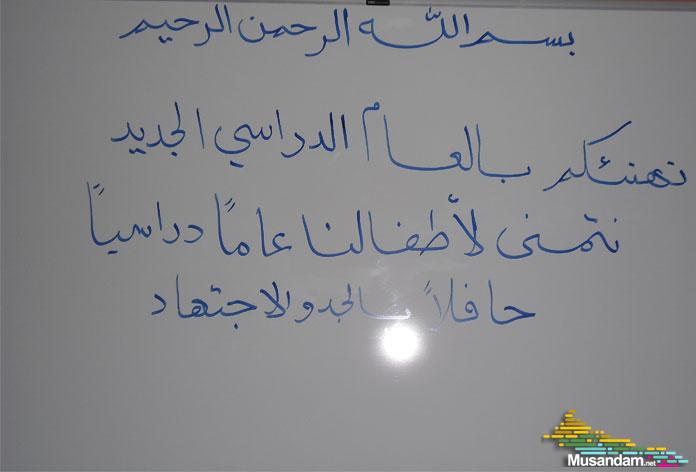 بسم الله الرحمن الرحيم
نهنئكم بالعام الدراسي الجديد
نتمنى لأطفالنا عاماً دراسياً
حافلاً بالجد والاجتهاد
Musandam.net